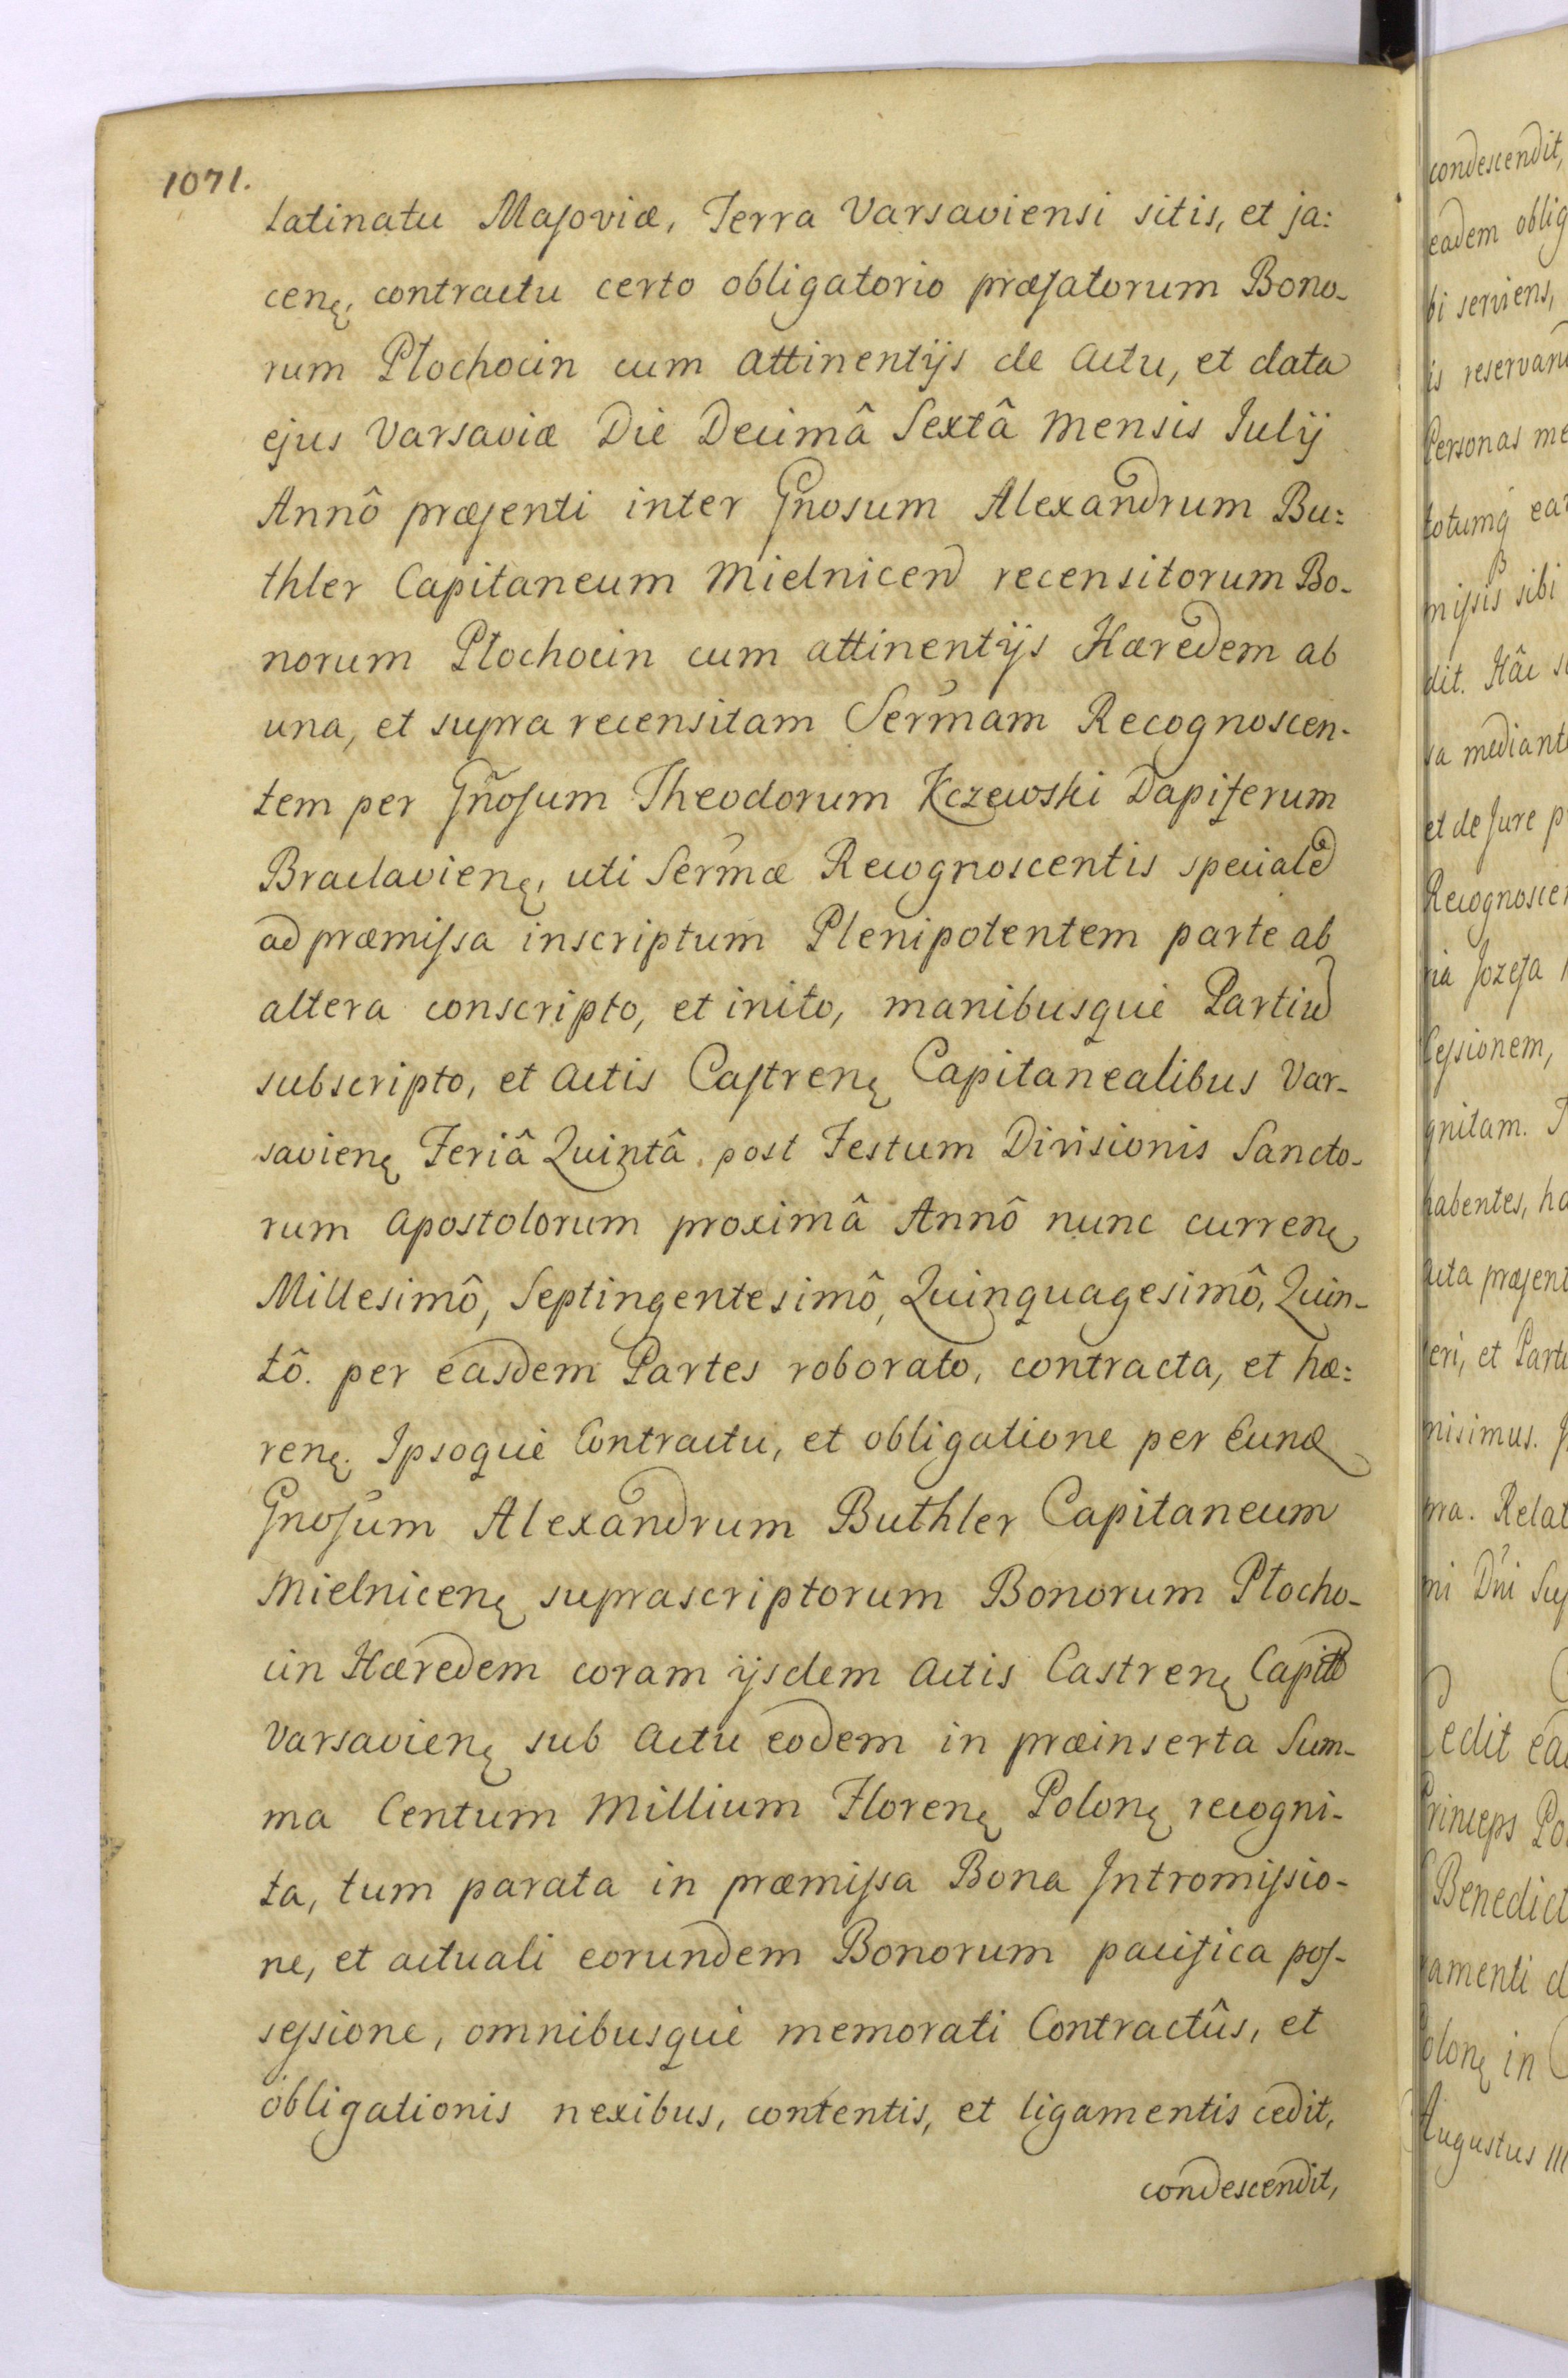 1071.
latinatu Masoviæ, Terra Varsaviensi sitis, et ja:
cenę, contractu certo obligatorio præfatorum Bono-
rum Płochocin cum attinentijs de actu, et data
ejus Varsaviæ Die Decimâ Sextâ Mensis Julij
Annô præsenti inter Gnosum Alexandrum Bu:
thler Capitaneum Mielnicen recensitorum Bo-
norum Płochocin cum attinentijs Hæredem ab
una, et supra recensitam Sermam Recognoscen-
tem per Gnosum Theodorum Kczewski Dapiferum
Braclavienę, uti Sermæ Recognoscentis speciale
ad præmissa inscriptum Plenipotentem parte ab
altera conscripto, et inito, manibusquè Partiu
subscripto, et actis Castrenę Capitanealibus Var-
savienę Feriâ Quintâ post Festum Divisionis Sancto-
rum Apostolorum proximâ Annô nunc currenę
Millesimô, Septingentesimô, Quinquagesimô, Quin-
tô. per easdem Partes roborato, contracta, et hæ:
renę. Ipsoquè Contractu, et obligatione per Eund
Gnosum Alexandrum Buthler Capitaneum
Mielnicenę suprascriptorum Bonorum Płocho-
cin Hæredem coram ijsdem Actis Castrenę Capit
Varsavienę sub Actu eodem in præinserta Sum-
ma Centum Millium Florenę Polonę recogni-
ta, tum parata in præmissa Bona Intromissio-
ne, et actuali eorundem Bonorum pacifica pos-
sessione, omnibusquè memorati Contractûs, et
obligationis nexibus, contentis, et ligamentis cedit,
condescendit,
condescendit,
eadem oblig
bi serviens,
is reservan
Personas me
totumq ear
missis sibi
dit. Hâc
sa mediant
et de Jure p
Recognoscen
ria Jozefa
Cessionem,
gnitam.
habentes, ha
acta præsent
eri, et Part
misimus.
pra. Relat
mi Dni Sup
Cedit ea
Princeps Po
Benedict
ramenti d
olonę in
Augustus III